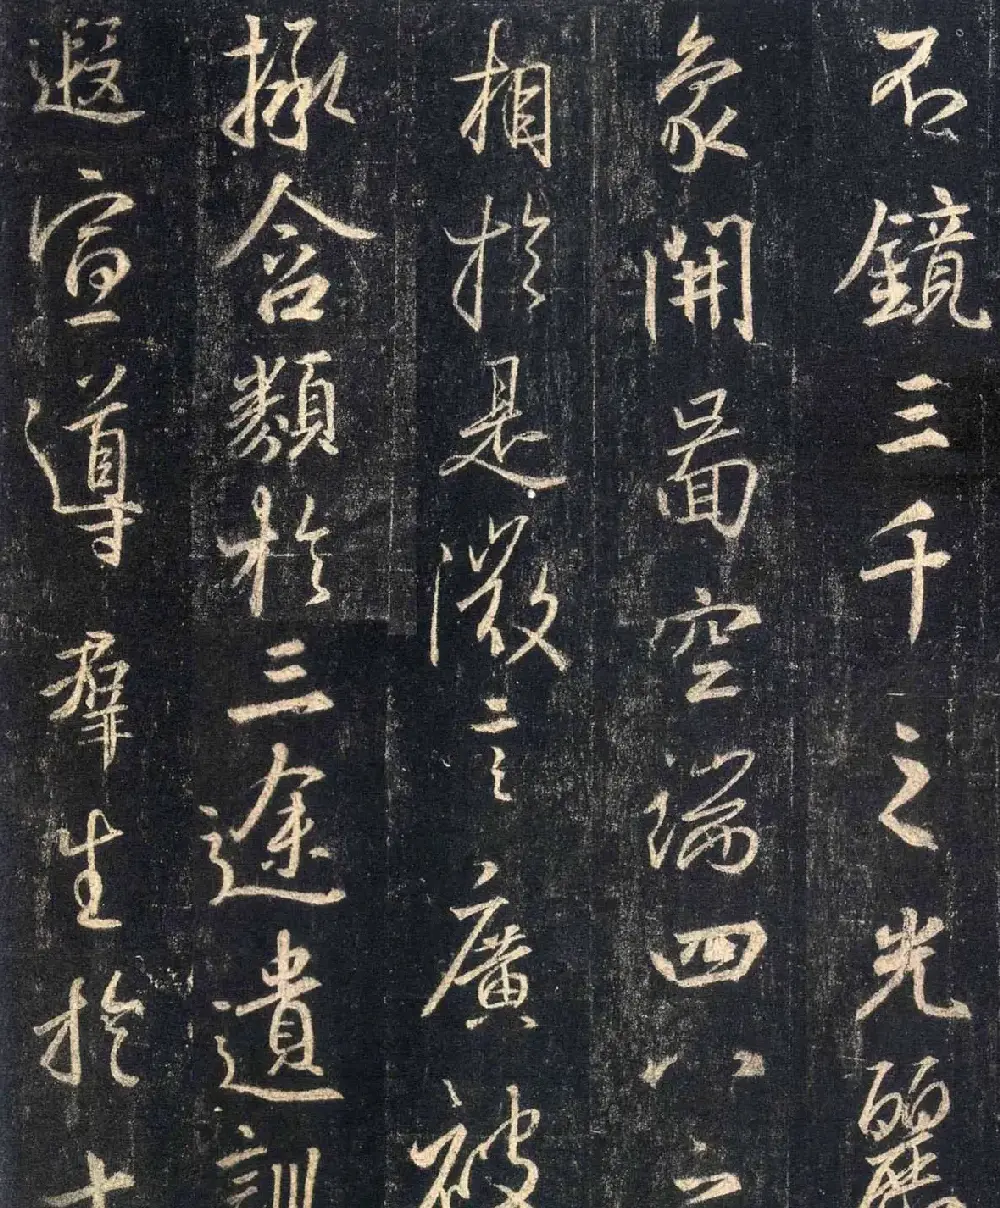 而鏡三千之光麗
象開啚空端四八之
相於是微言廣被
拯含類於三途遺訓
遐宣導羣生於十